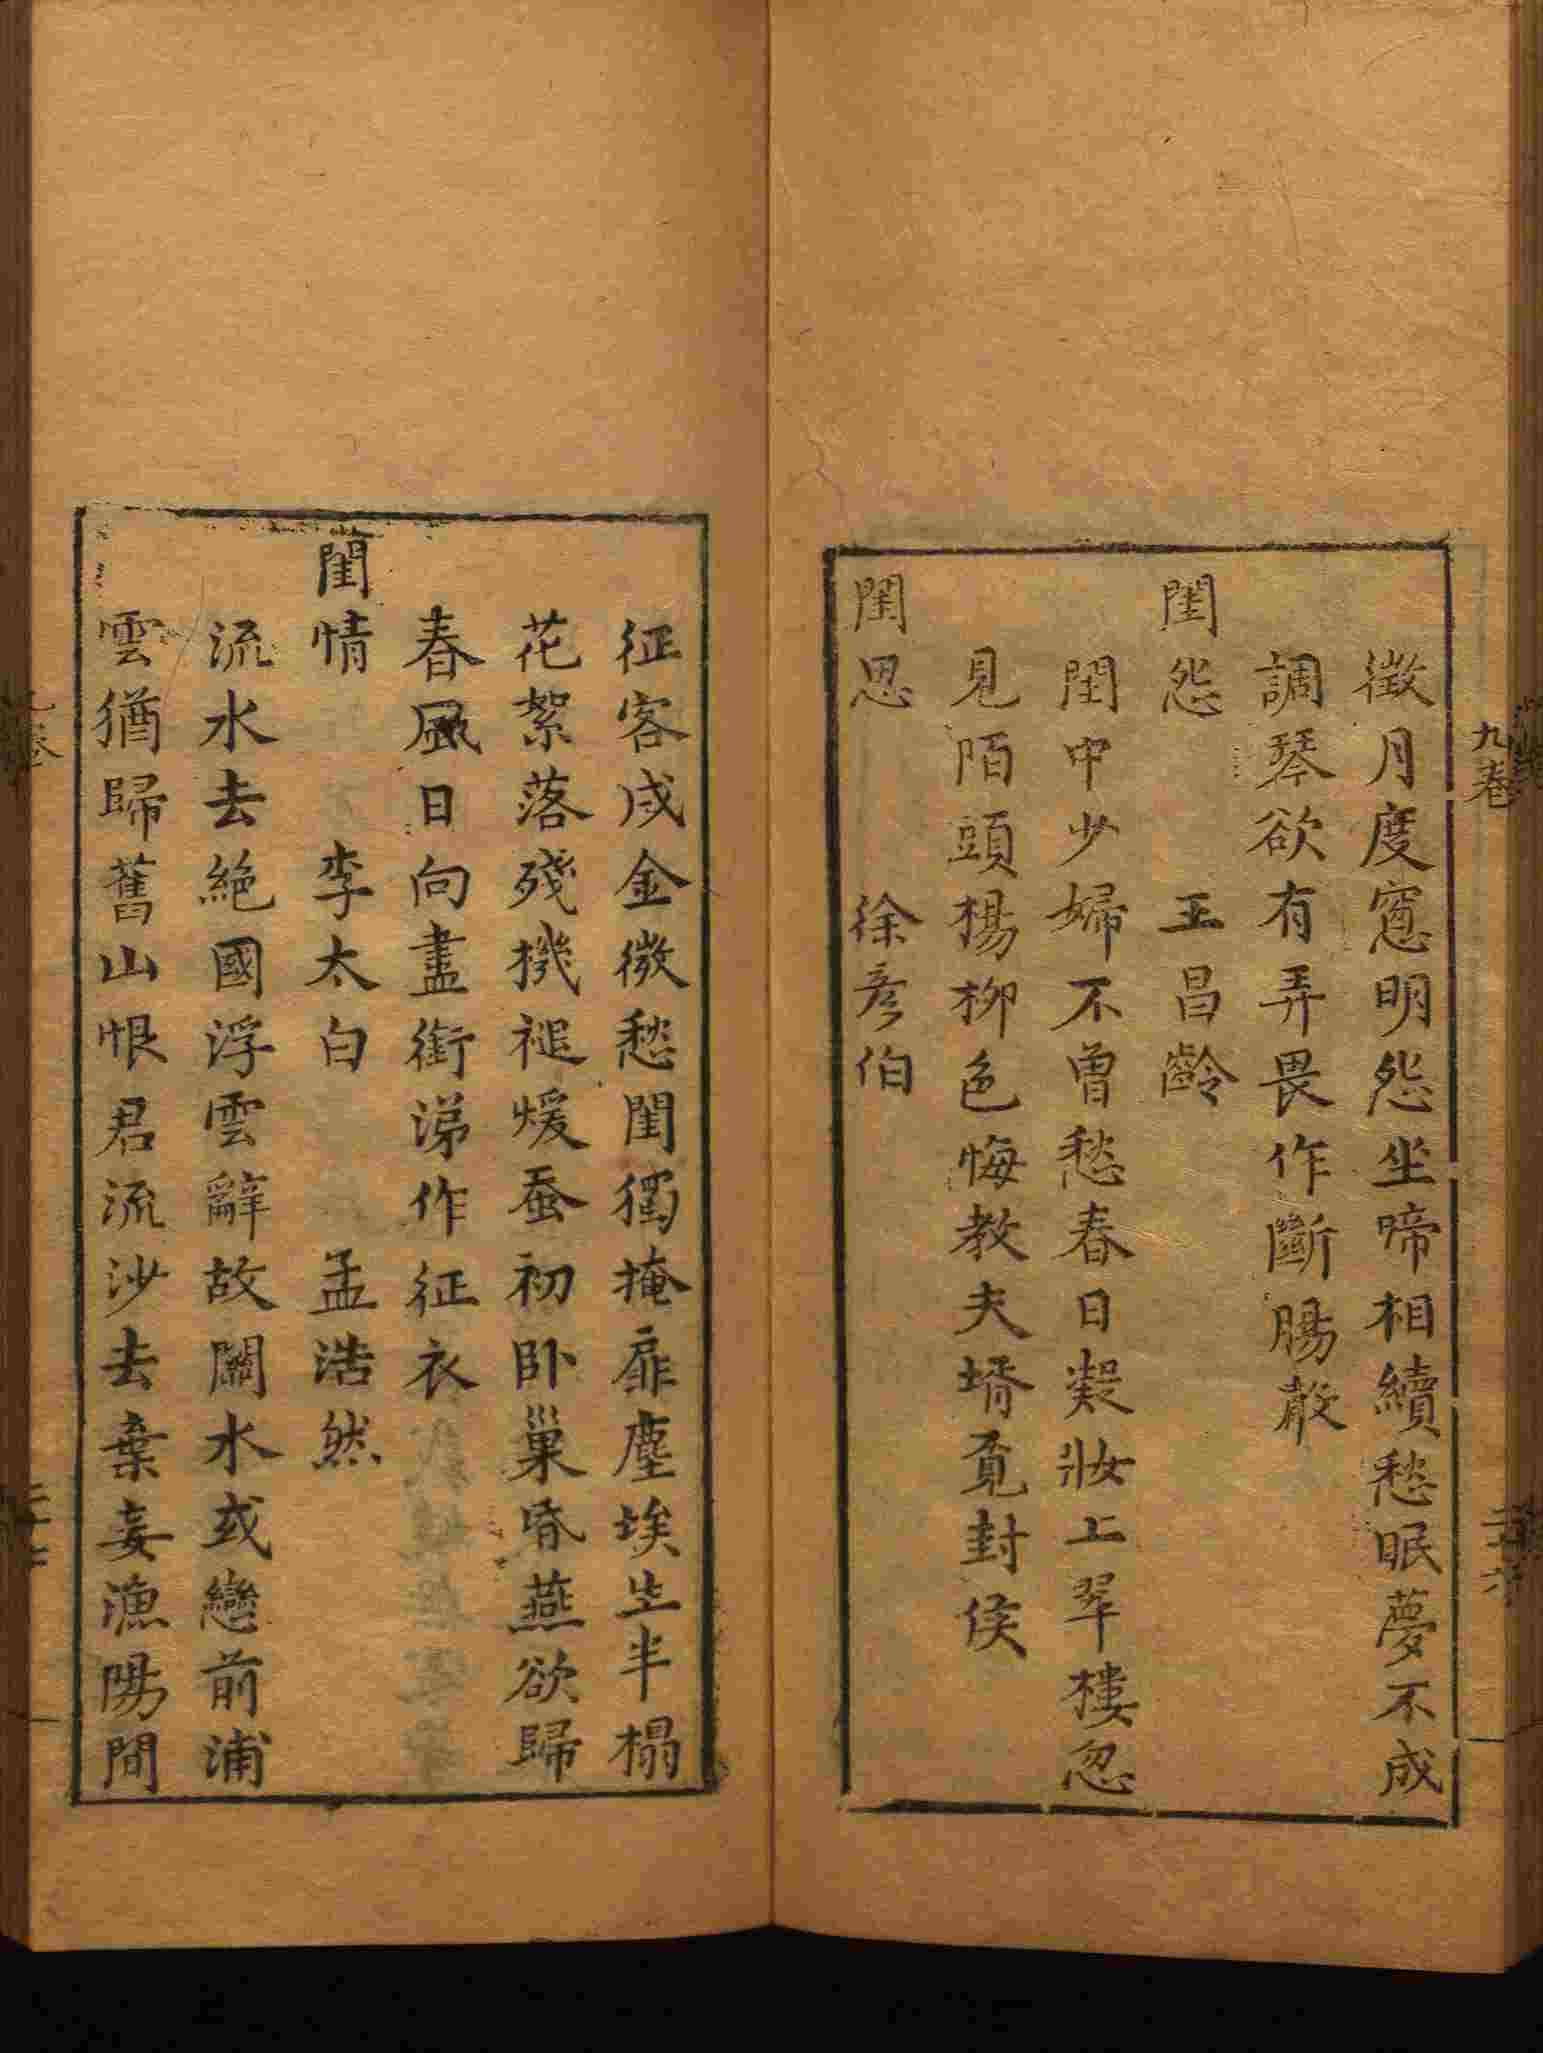 徵月度窓明怨坐啼相續愁眠夢不成
調琴欲有弄畏作斷腸聲
閨怨 王昌齡
閨中少婦不曾愁春日凝妝上翠樓忽
見陌頭楊柳色悔教夫壻覓封侯
閨思 徐彥伯
九卷
征客戍金微愁閨獨掩扉塵埃生半榻
花絮落殘機褪煖蚕初臥巢昏燕欲歸
春風日向盡銜涕作征衣
閨情 李太白 孟浩然
流水去絕國浮雲辭故關水或戀前浦
雲猶歸舊山恨君流沙去棄妾漁陽間